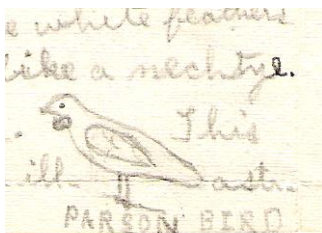 e white feathers
like a necktye.
This
ill
PARSON BIRD